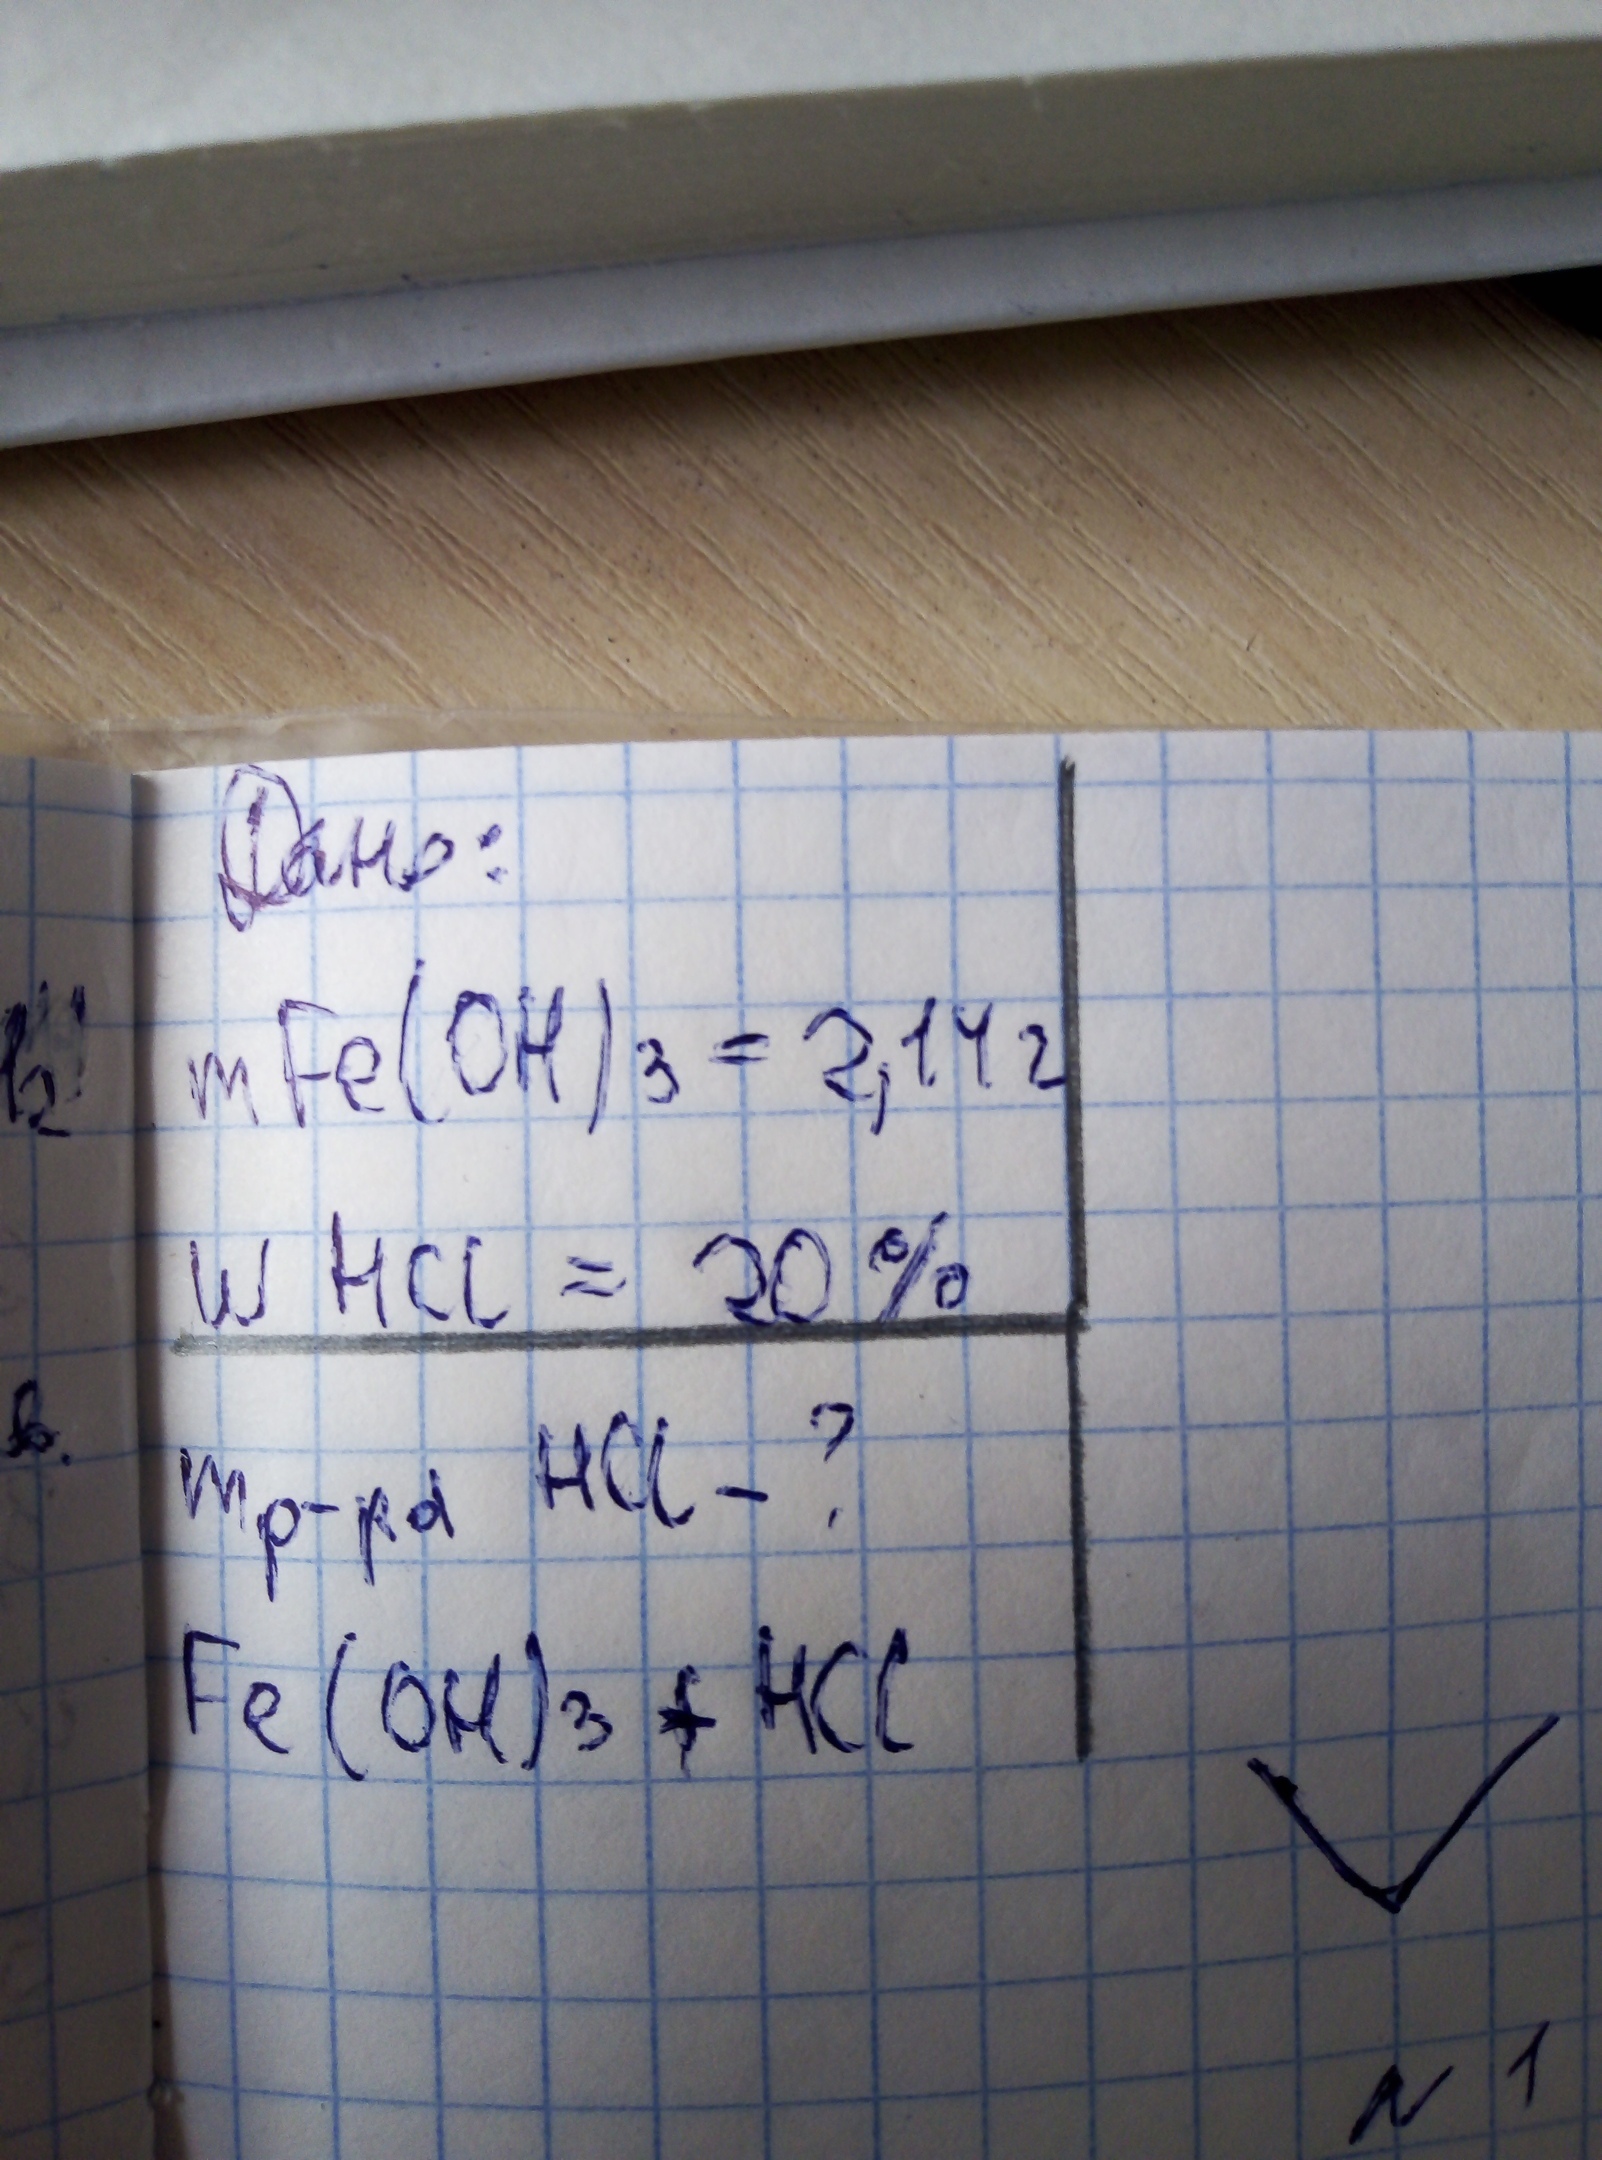 Дано:
mFe(OH)3 = 2,14г
W HCl = 20 %
mр-ра HCl - ?
Fe(OH)3 + HCl
N 1